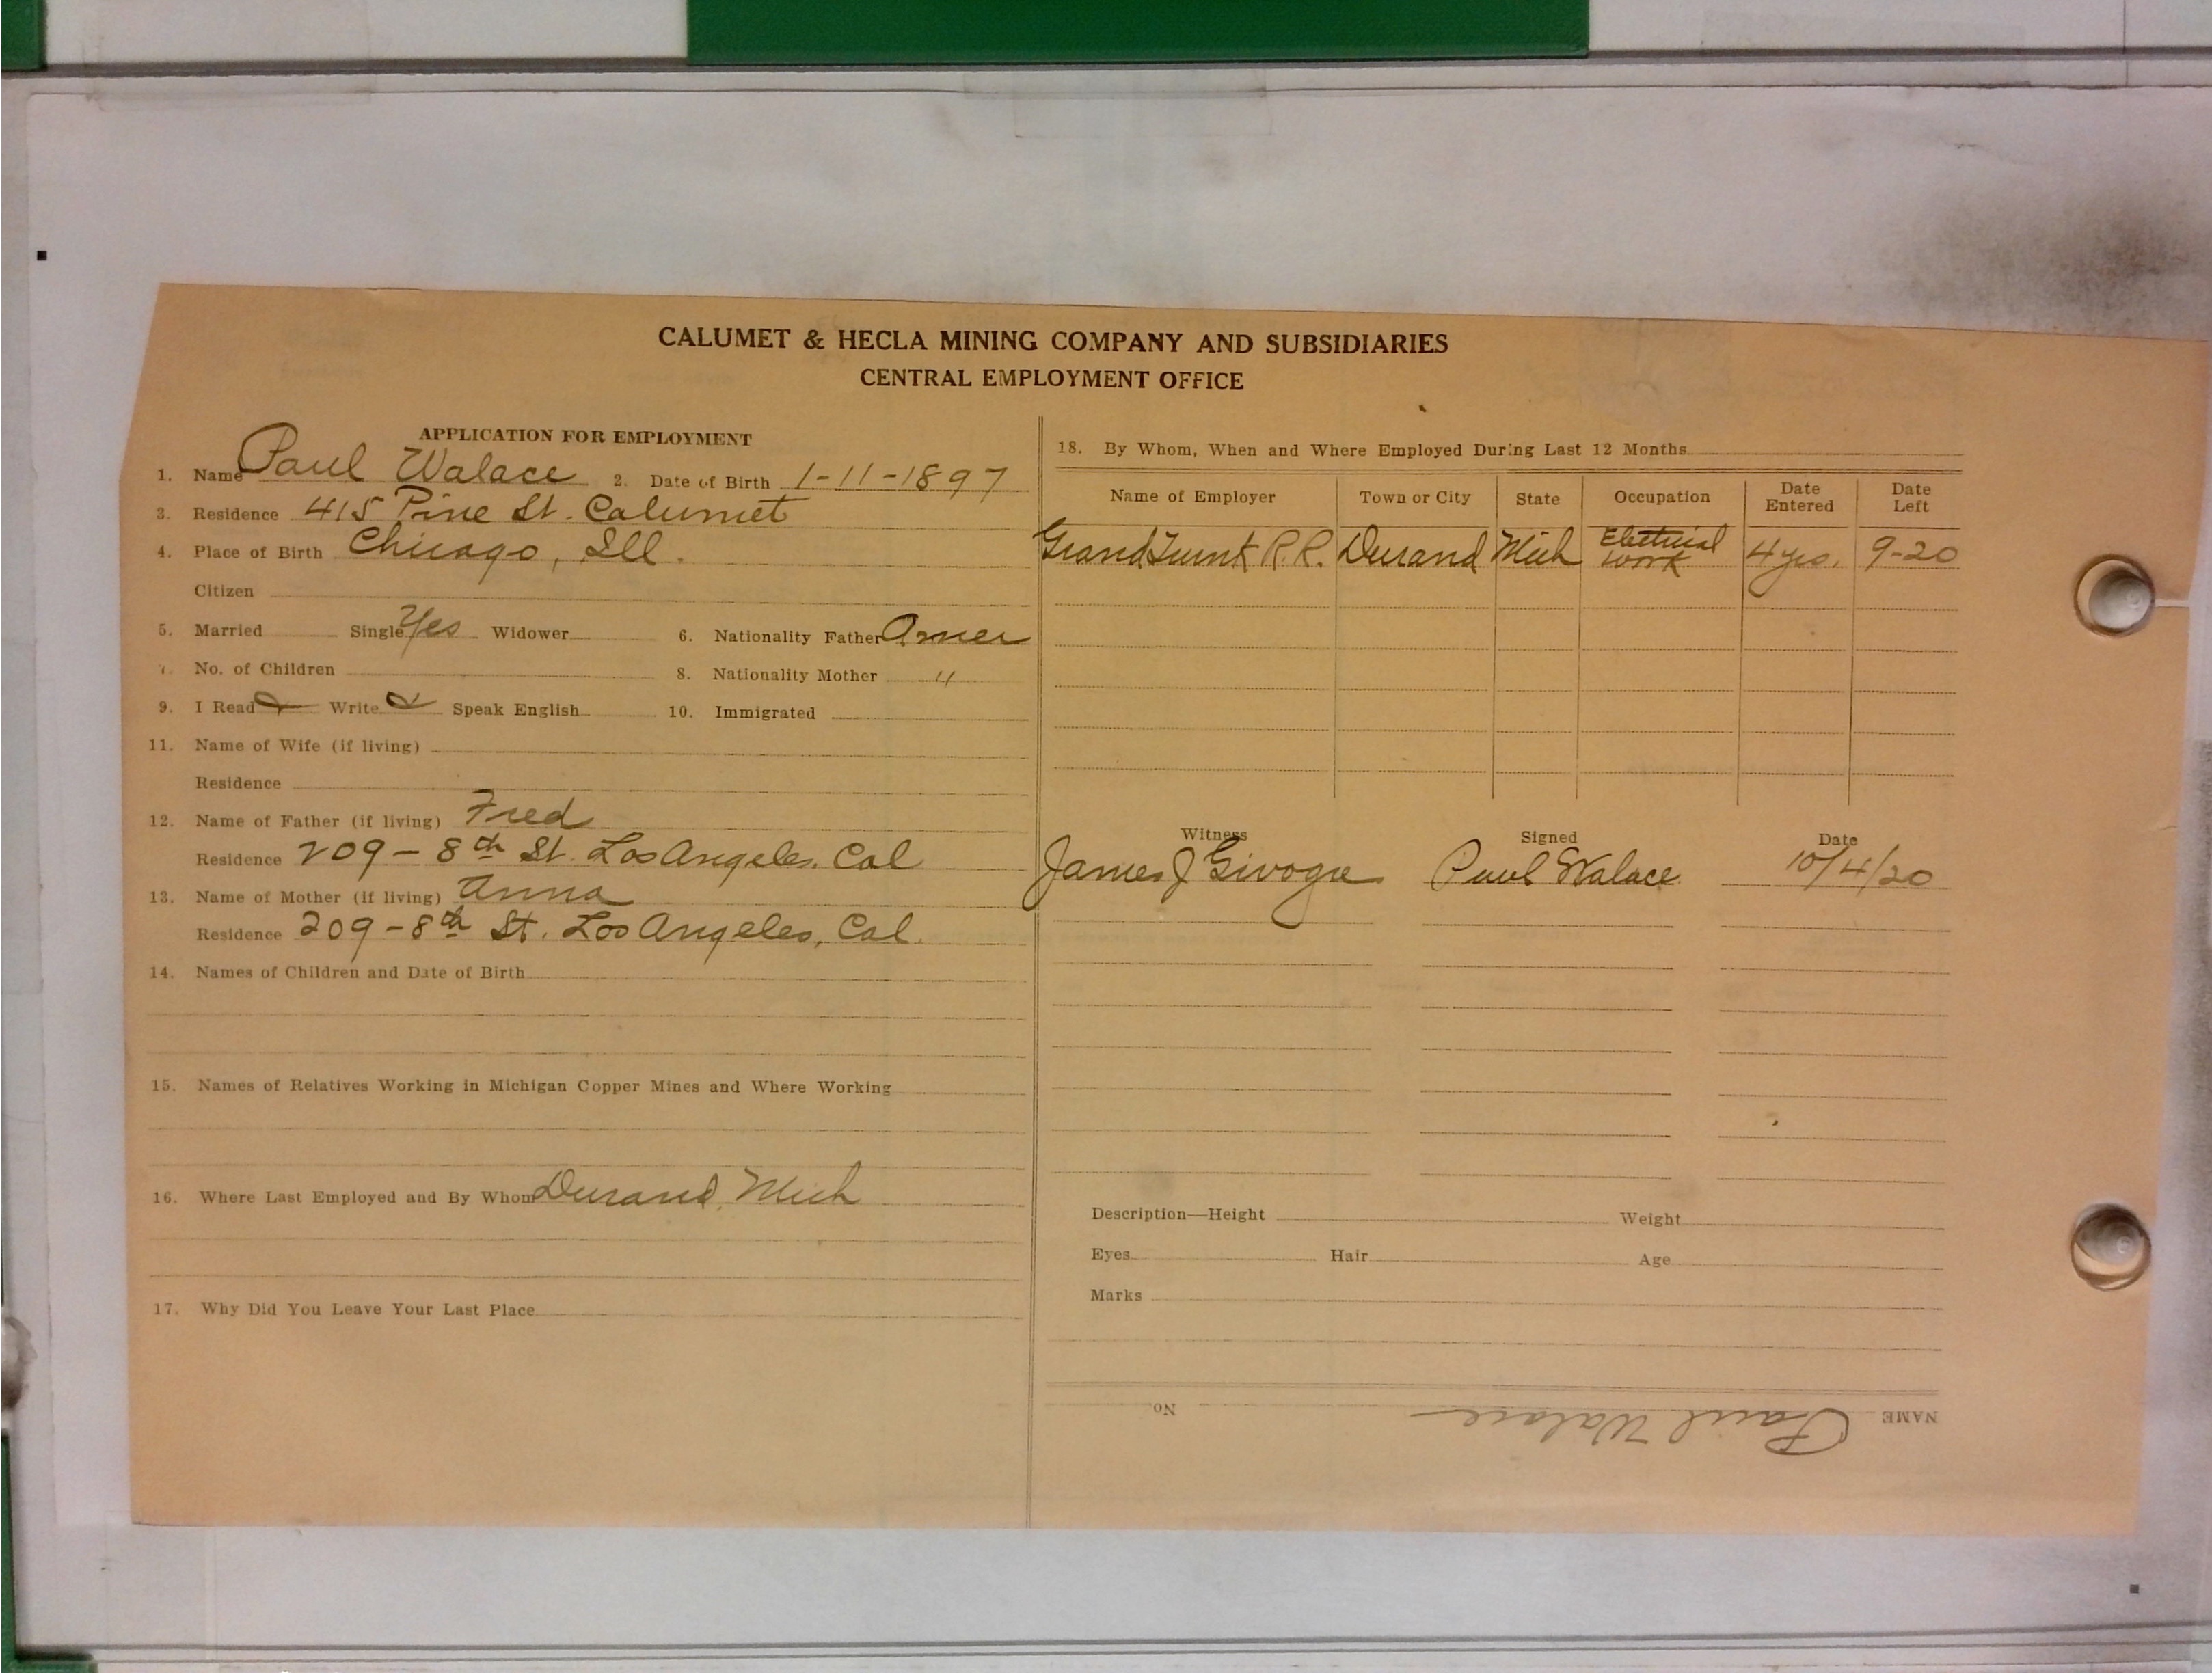 CALUMET & HECLA MINING COMPANY AND SUBSIDIARIES
CENTRAL EMPLOYMENT OFFICE
APPLICATION FOR EMPLOYMENT
1. Name Paul Walace 2. Date of Birth 1-11-1897
3. Residence 415 Pine St. Calumet
4. Place of Birth Chicago, Ill.
Citizen
5. Married Single Yes Widower 6. Nationality Father Amer
7. No. of Children 8. Nationality Mother "
9. I Read Write Speak English 10. Immigrated
11. Name of Wife (if living)
Residence
12. Name of Father (if living) Fred
Residence 209 - 8th St. Los Angeles. Cal
13. Name of Mother (if living) Anna
Residence 209 - 8th St. Los Angeles, Cal.
14. Names of Children and Date of Birth
15. Names of Relatives Working in Michigan Copper Mines and Where Working
16. Where Last Employed and By Whom Durand, Mich
17. Why Did You Leave Your Last Place
18. By Whom, When and Where Employed During Last 12 Months
Name of Employer Town or City State Occupation Date Entered Date Left
Grand Trunk R.R. Durand Mich Electrical work 4 yrs. 9-20
Witness Signed Date
James J Paul Walace 10/4/20
Description—Height Weight
Eyes Hair Age
Marks
NAME Paul Walace No.